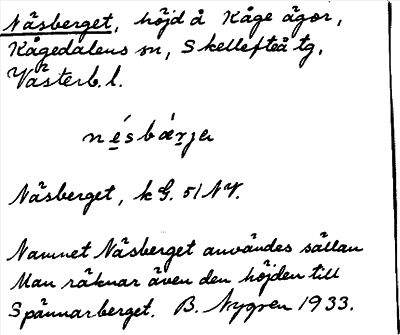 Näsberget, höjd å Kåge ägor,
Kågedalens sn, Skellefteå tg,
Västerb. l.
nę́sbæ̀rjɐ
Näsberget, k G. 51 NV.
Namnet Näsberget användes sällan
Man räknar även den höjden till
Spännarberget. B. Nygren 1933.